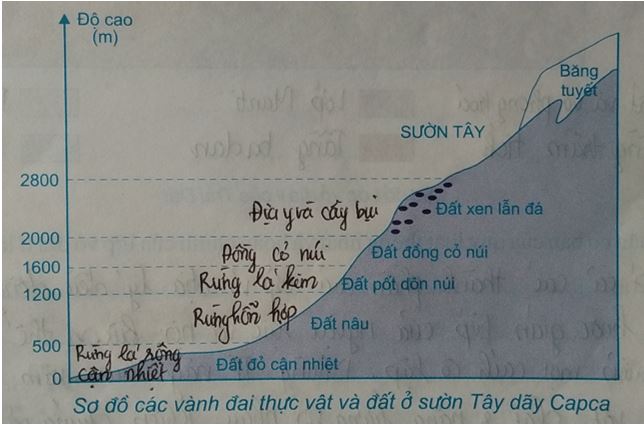 Độ cao
(m)
Băng
tuyết
SƯỜN TÂY
2800
Địa y và cây bụi
Đất xen lẫn đá
2000
Đồng cỏ núi
Đất đồng cỏ núi
1600
Rừng lá kim
Đất pốt dôn núi
1200
Rừng hỗn hợp
Đất nâu
500
Rừng lá rộng
cận nhiệt
Đất đỏ cận nhiệt
0
Sơ đồ các vành đai thực vật và đất ở sườn Tây dãy Capca